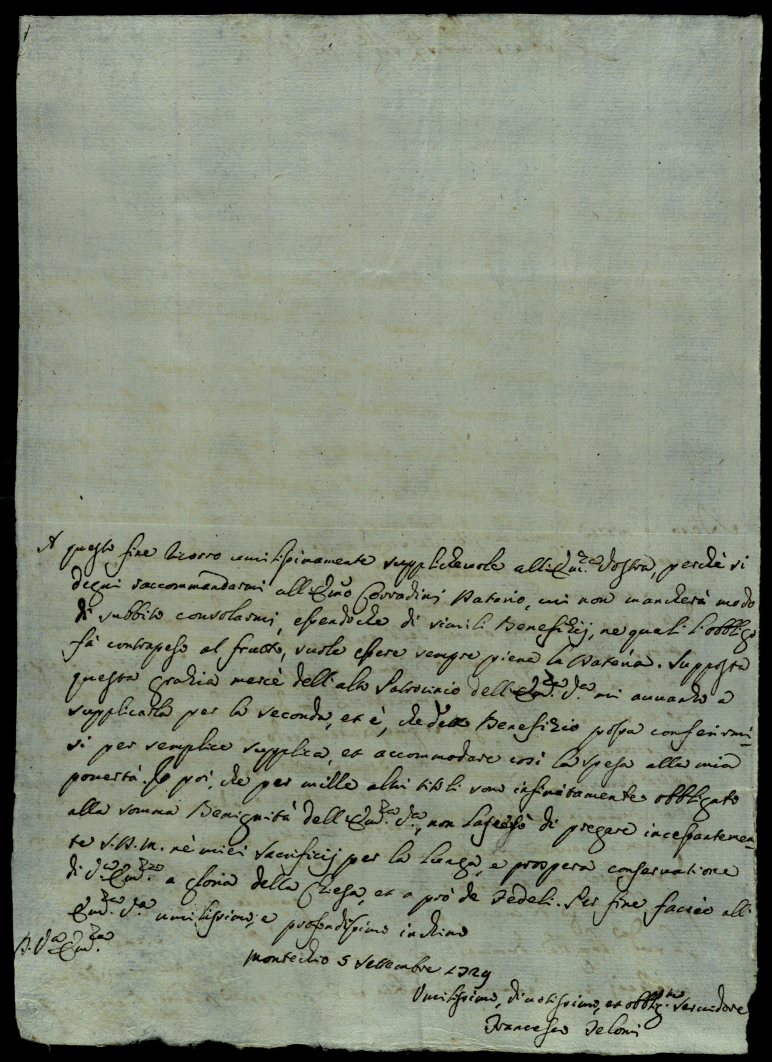 A questo fine ricorro umilissimamente supplichevole all'Em.za Vostra, perchè si
degni raccommandarmi all'Emo Corradini Datario, cui non mancherà modo
di subbito consolarmi, essendoche di simili Benefizij, ne quali l'obbligo
fà contrapeso al frutto, suole essere sempre piena la Dataria. Supposta
questa grazia mercè dell'alto Patrocinio dell'Em.za V.a mi avvanzo a
supplicarla per la seconda, et è, che detto Benefizio possa conferirmi-
si per semplice supplica, et accommodare così la spesa alla mia
povertà. Io poi, che per mille altri titoli sono infinitamente obbligato
alla somma Benignità dell'Em.za V.a, non lascerò di pregare incessantemen-
te S.D.M. nè miei Sacrificij per la lunga, e prospera conservatione
di V.a Em.za a gloria della Chiesa, et a prò de Fedeli. Per fine faccio all'
Em.za V.a umilissimo, e profondissimo inchino
D. V.a Em.za
Montechio 5 Settembre 1729
Umilissimo, divotissimo, et obblig.mo Servidore
Francesco